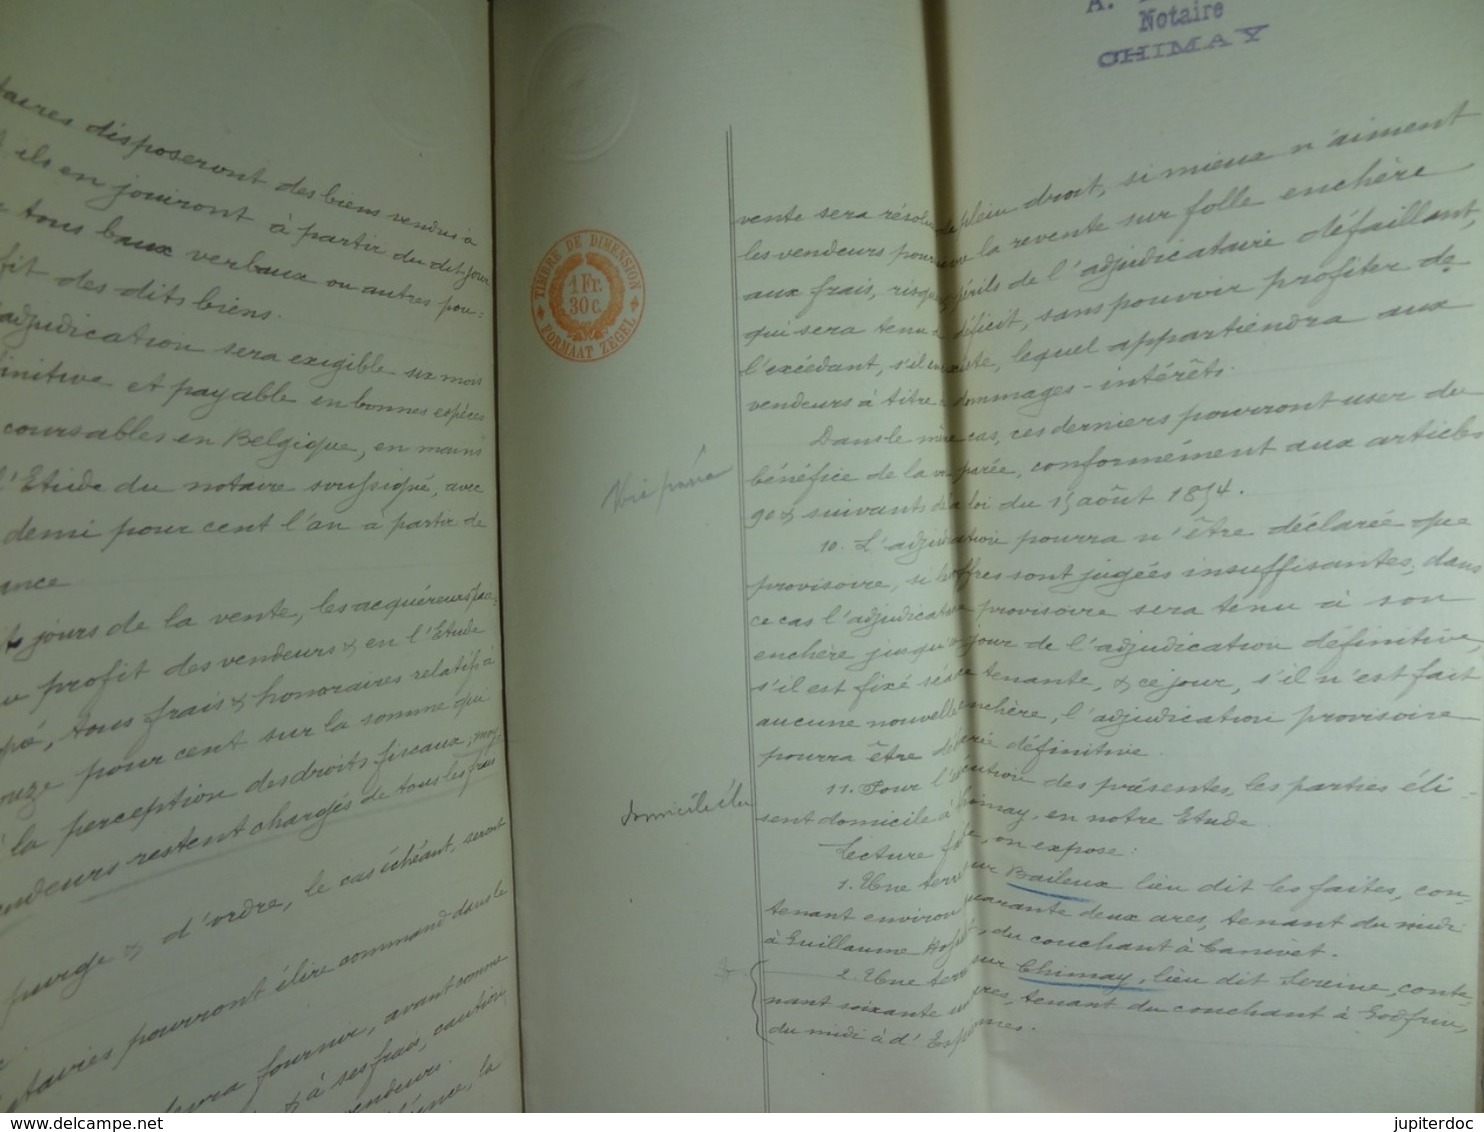 taires disposeront des biens vendus à
ils en jouiront à partir du dit jour
tous baux verbaux ou autres pou=
fit des dits biens.
adjudication sera exigible six mois
finitive et payable en bonnes espèces
coursables en Belgique, en mains
l'Etude du notaire soussigné, avec
demi pour cent l'an à partir de
ance
jours de la vente, les acquéreurs
profit des vendeurs & en l'Etude
tous frais & honoraires relatifs à
onze pour cent sur la somme qui
la perception des droits fiscaux,
ndeurs restent chargés de tous les frais
purge & d'ordre, le cas échéant, seront
taires pourront élire command dans le
devra fournir, avant comme
& à ses frais, caution
vendeurs.
la
TIMBRE DE DIMENSION
1 Fr.
30 c.
FORMAAT ZEGEL
A.
Notaire
CHIMAY
vente sera résolue de plein droit, si mieux n'aiment
les vendeurs poursuivre la revente sur folle enchère
aux frais, risques, périls de l'adjudicataire défaillant,
qui sera tenu du déficit, sans pouvoir profiter de
l'excédant, s'il en existe, lequel appartiendra aux
vendeurs à titre de dommages-intérêts.
Dans le même cas, ces derniers pourront user du
Voie parée
bénéfice de la voie parée, conformément aux articles
90 & suivants de la loi du 15 août 1854.
10. L'adjudication pourra n'être déclarée que
provisoire, si les offres sont jugées insuffisantes; dans
ce cas l'adjudicataire provisoire sera tenu à son
enchère jusqu'au jour de l'adjudication définitive,
s'il est fixé séance tenante, & ce jour, s'il n'est fait
aucune nouvelle enchère, l'adjudication provisoire
pourra être déclarée définitive.
11. Pour l'exécution des présentes, les parties éli-
domicile élu
sent domicile à Chimay, en notre Etude
Lecture faite, on expose:
1. Une terre sur Baileux lieu dit les faites, con-
tenant environ quarante deux ares, tenant du midi
à Guillaume du couchant à Canivet.
2. Une terre sur Chimay, lieu dit Sereine, conte-
nant soixante un ares, tenant du couchant à Godfrin,
du midi à d'
delcampe.net
jupiterdoc